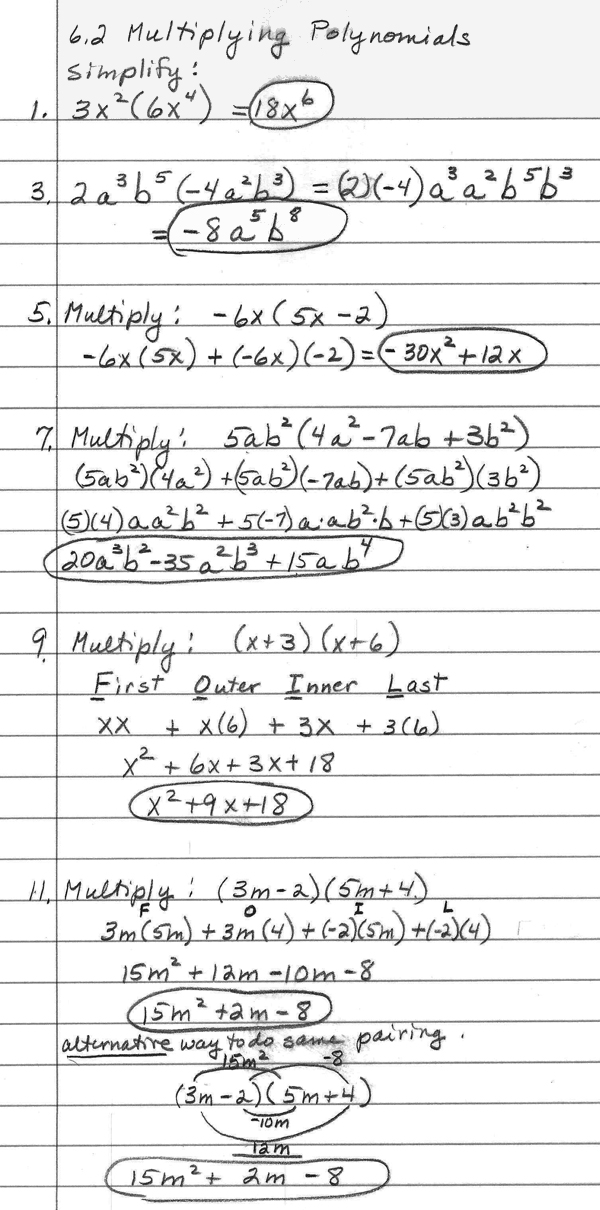 6.2 Multiplying Polynomials
Simplify:
1. 3x²(6x⁴) = 18x⁶
3. 2a³b⁵(-4a²b³) = (2)(-4)a³a²b⁵b³
= -8a⁵b⁸
5. Multiply: -6x(5x-2)
-6x(5x) + (-6x)(-2) = -30x²+12x
7. Multiply: 5ab²(4a²-7ab+3b²)
(5ab²)(4a²)+(5ab²)(-7ab)+(5ab²)(3b²)
(5)(4)aa²b² + 5(-7)a·ab²·b+(5)(3)ab²b²
20a³b²-35a²b³+15ab⁴
9. Multiply: (x+3)(x+6)
First Outer Inner Last
xx + x(6) + 3x + 3(6)
x² + 6x + 3x + 18
x²+9x+18
11. Multiply: (3m-2)(5m+4)
F O I L
3m(5m) + 3m(4) + (-2)(5m) + (-2)(4)
15m² + 12m - 10m - 8
15m² + 2m - 8
alternative way to do same pairing.
15m² -8
(3m-2)(5m+4)
-10m
12m
15m² + 2m - 8